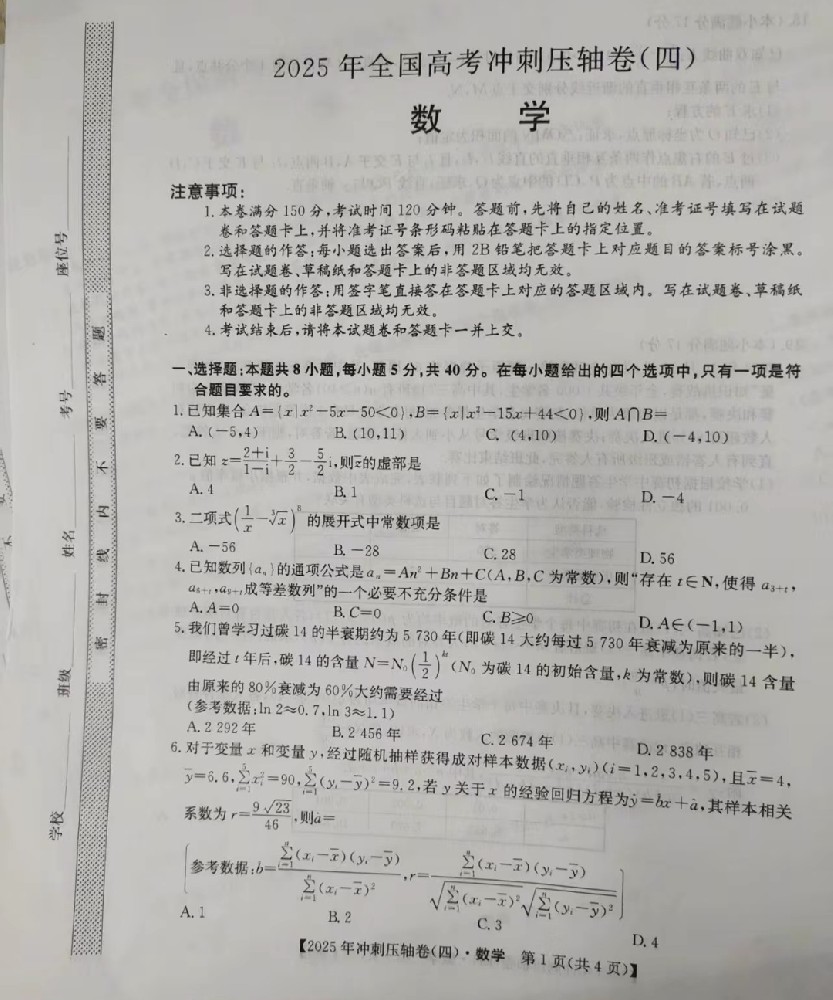 2025年全国高考冲刺压轴卷(四)
数 学
注意事项:
1.本卷满分150分,考试时间120分钟。答题前,先将自己的姓名、准考证号填写在试题
卷和答题卡上,并将准考证号条形码粘贴在答题卡上的指定位置。
2.选择题的作答:每小题选出答案后,用2B铅笔把答题卡上对应题目的答案标号涂黑。
写在试题卷、草稿纸和答题卡上的非答题区域均无效。
3.非选择题的作答:用签字笔直接答在答题卡上对应的答题区域内。写在试题卷、草稿纸
和答题卡上的非答题区域均无效。
4.考试结束后,请将本试题卷和答题卡一并上交。
一、选择题:本题共8小题,每小题5分,共40分。在每小题给出的四个选项中,只有一项是符
合题目要求的。
1.已知集合A={x|x²-5x-50<0},B={x|x²-15x+44<0},则A∩B=
A.(-5,4) B.(10,11) C.(4,10) D.(-4,10)
2.已知z=\frac{2+i}{1-i}+\frac{3}{2}-\frac{5}{2}i,则\overline{z}的虚部是
A.4 B.1 C.-1 D.-4
3.二项式(\frac{1}{x}-\sqrt[3]{x})⁸的展开式中常数项是
A.-56 B.-28 C.28 D.56
4.已知数列{aₙ}的通项公式是aₙ=An²+Bn+C(A,B,C为常数),则“存在t∈N,使得a_{3+t},
a_{6+t},a_{9+t}成等差数列”的一个必要不充分条件是
A.A=0 B.C=0 C.B≥0 D.A∈(-1,1)
5.我们曾学习过碳14的半衰期约为5 730年(即碳14大约每过5 730年衰减为原来的一半),
即经过t年后,碳14的含量N=N₀(\frac{1}{2})^{kt}(N₀为碳14的初始含量,k为常数),则碳14含量
由原来的80%衰减为60%大约需要经过
(参考数据:ln 2≈0.7,ln 3≈1.1)
A.2 292年 B.2 456年 C.2 674年 D.2 838年
6.对于变量x和变量y,经过随机抽样获得成对样本数据(xᵢ,yᵢ)(i=1,2,3,4,5),且\overline{x}=4,
\overline{y}=6.6,\sum_{i=1}^{5}xᵢ²=90,\sum_{i=1}^{5}(yᵢ-\overline{y})²=9.2,若y关于x的经验回归方程为\hat{y}=\hat{b}x+\hat{a},其样本相关
系数为r=\frac{9\sqrt{23}}{46},则\hat{a}=
(参考数据:\hat{b}=\frac{\sum_{i=1}^{n}(xᵢ-\overline{x})(yᵢ-\overline{y})}{\sum_{i=1}^{n}(xᵢ-\overline{x})²},r=\frac{\sum_{i=1}^{n}(xᵢ-\overline{x})(yᵢ-\overline{y})}{\sqrt{\sum_{i=1}^{n}(xᵢ-\overline{x})²}\sqrt{\sum_{i=1}^{n}(yᵢ-\overline{y})²}})
A.1 B.2 C.3 D.4
【2025年冲刺压轴卷(四)·数学 第1页(共4页)】
学校 班级 姓名 考号 座位号
密 封 线 内 不 要 答 题